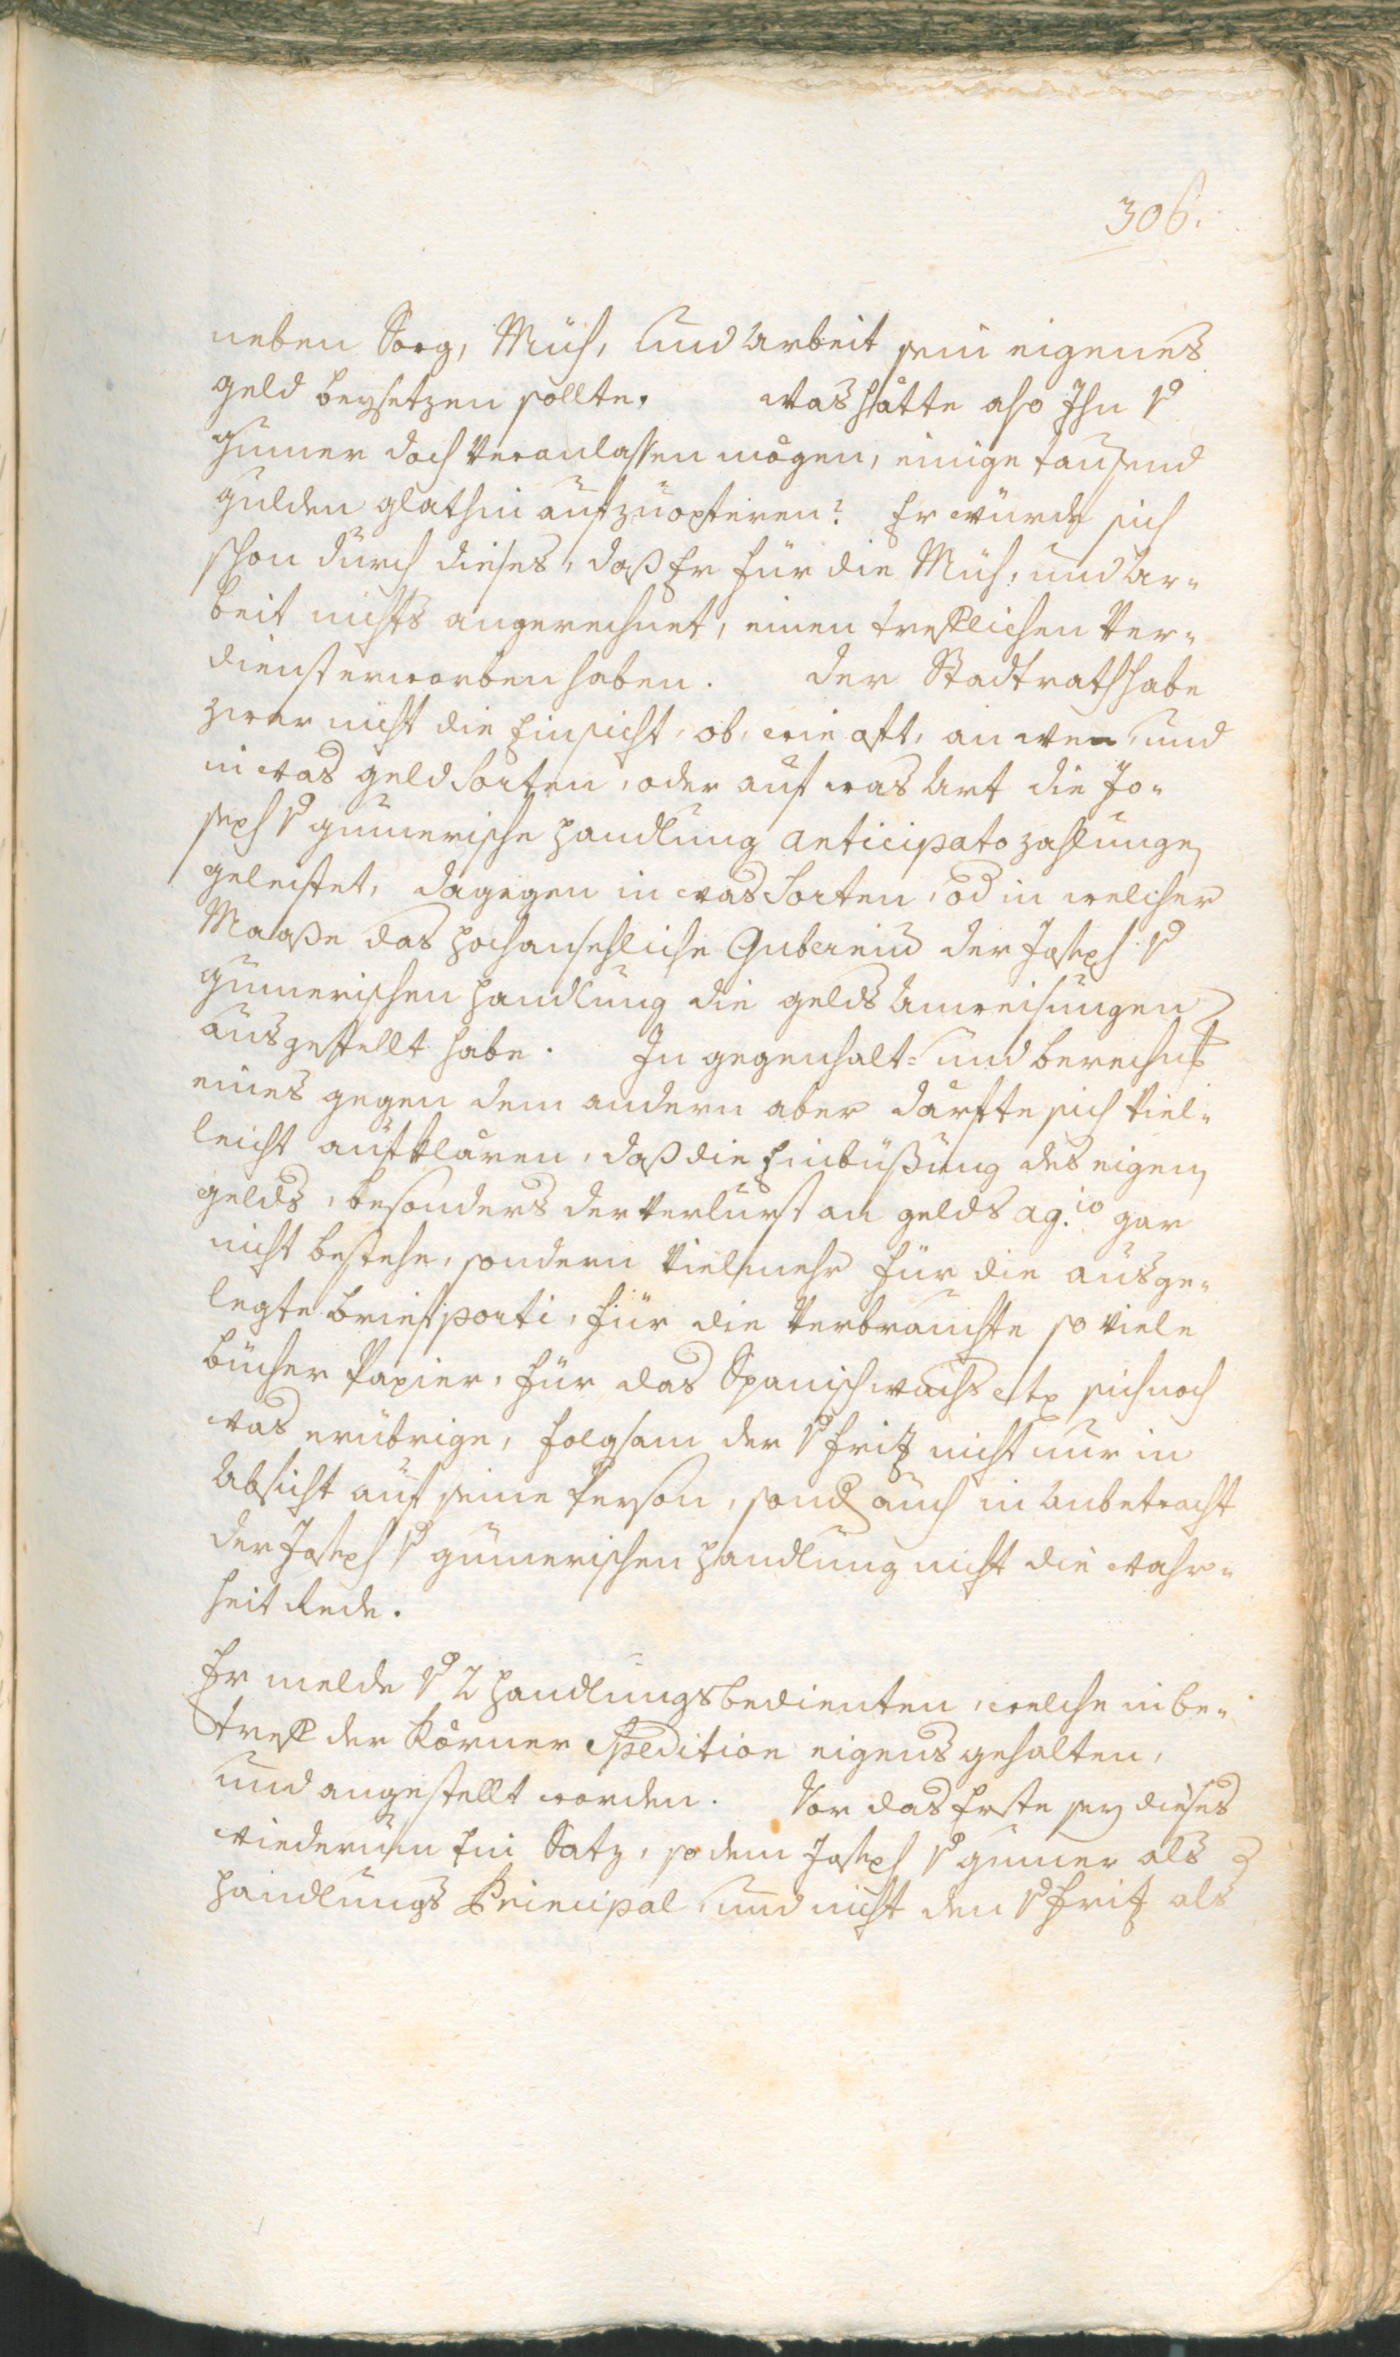 306.
neben Sorg, Müh, und Arbeit sein eigenes
geld beysetzen sollte. was hätte also Ihn v
Gumer doch veranlassen mögen, einige tausend
gulden glathin aufzuopferen? Er würde sich
schon durch dieses, daß Er für die Müh, und Ar-
beit nichts angerechnet, einen trefflichen Ver-
dienst erworben haben. der Stadtrath habe
zwar nicht die Einsicht, ob, wie oft, an wen, und
in was geldsorten, oder auf was Art die Jo-
seph v gumerische Handlung anticipato zahlungen
geleistet, dagegen in was Sorten, od in welcher
Maaße das hochansehliche Guberniu der Joseph v
gumerischen Handlung die gelds Anweisungen
ausgestellt habe. In gegenhalt- und berechnug
eines gegen dem andern aber darfte sich viel-
leicht aufklären, daß die Einbüßung des eigen
gelds, besonders der verlurst an gelds ag.io gar
nicht bestehe, sondern vielmehr für die ausge-
legte briefporti, für die verbrauchte so viele
bücher Papier, für das Spanischwachs etc sich noch
was erübrige, folgsam der v Fritz nicht nur in
Absicht auf seine Person, sond auch in Anbetracht
der Joseph v gumerischen Handlung nicht die wahr-
heit Rede.
Er melde v 2 Handlungsbedienten, welche in be-
treff der Körner Spedition eigens gehalten,
und angestellt worden. Vor das Erste sey dieses
wiederum Ein Satz, so dem Joseph v gumer als
Handlungs Principal, und nicht den v Fritz als